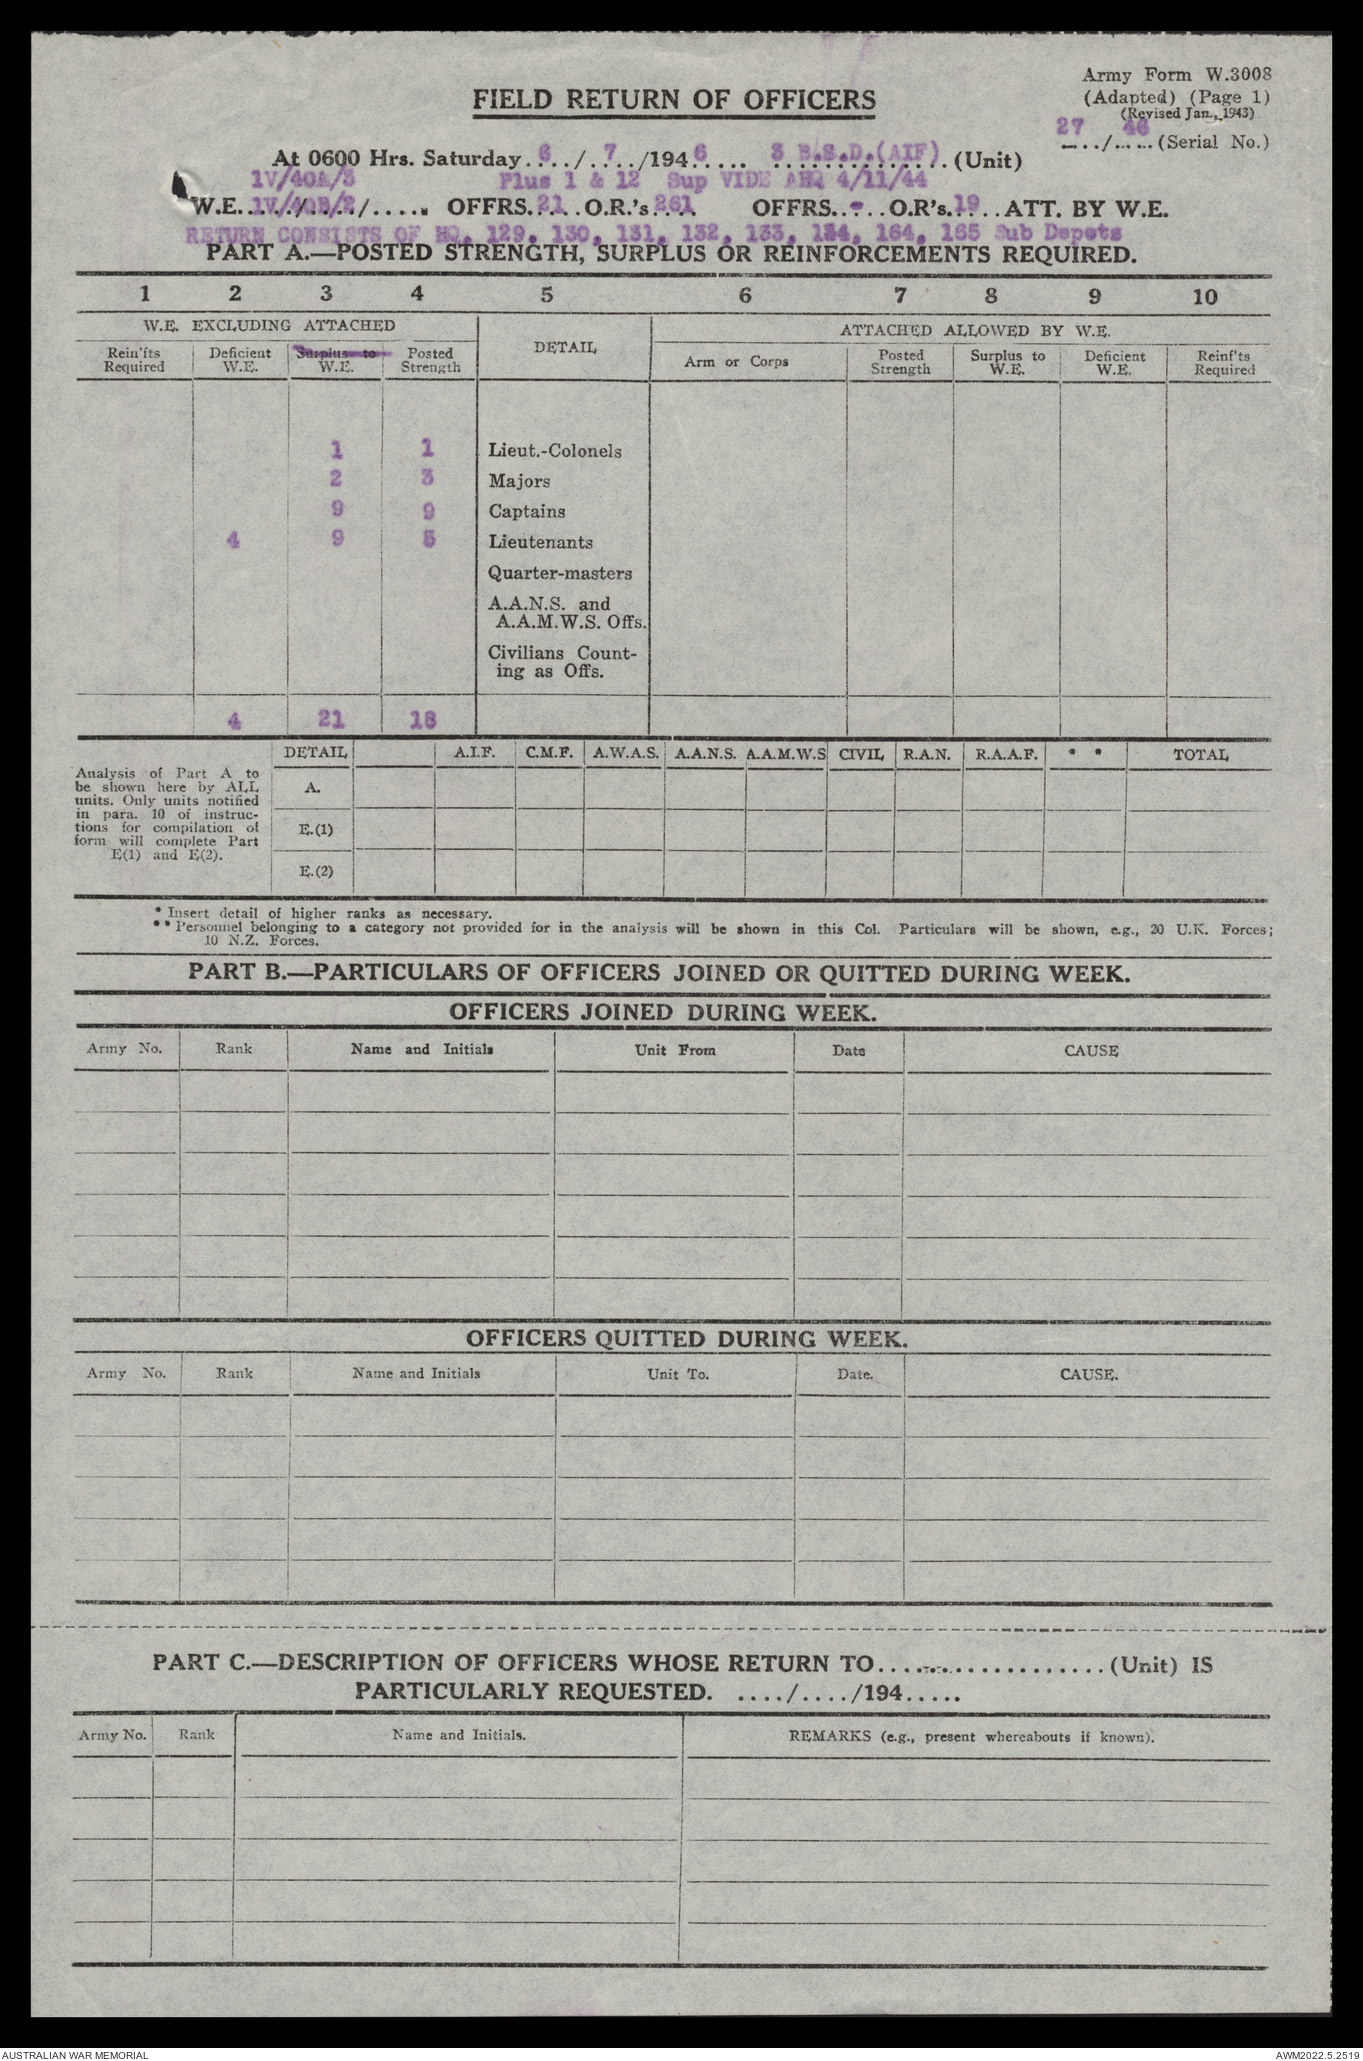 Army Form W.3008
FIELD RETURN OF OFFICERS
(Adapted) (Page 1)
(Revised Jan., 1943)
27 46
... / ..... (Serial No.)
At 0600 Hrs. Saturday. 6 ../. 7 ../194 6 ..... 3 B.S.D.(AIF) (Unit)
1V/40A/3 Plus 1 & 12 Sup VIDE AHQ 4/11/44
W.E. 1V/40B/2 /..... OFFRS. 21 ..O.R.'s. 261 OFFRS..-...O.R's. 19 ..ATT. BY W.E.
RETURN CONSISTS OF HQ, 129, 130, 131, 132, 133, 134, 164, 165 Sub Depots
PART A.—POSTED STRENGTH, SURPLUS OR REINFORCEMENTS REQUIRED.
1 2 3 4 5 6 7 8 9 10
W.E. EXCLUDING ATTACHED DETAIL ATTACHED ALLOWED BY W.E.
Rein'fts Deficient Surplus to Posted Arm or Corps Posted Surplus to Deficient Reinf'ts
Required W.E. W.E. Strength Strength W.E. W.E. Required
1 1 Lieut.-Colonels
2 3 Majors
9 9 Captains
4 9 5 Lieutenants
Quarter-masters
A.A.N.S. and
A.A.M.W.S. Offs.
Civilians Count-
ing as Offs.
4 21 18
DETAIL A.I.F. C.M.F. A.W.A.S. A.A.N.S. A.A.M.W.S CIVIL R.A.N. R.A.A.F. * * TOTAL
Analysis of Part A to
be shown here by ALL
units. Only units notified
in para. 10 of instruc-
tions for compilation of
form will complete Part
E(1) and E(2).
A.
E.(1)
E.(2)
* Insert detail of higher ranks as necessary.
** Personnel belonging to a category not provided for in the analysis will be shown in this Col. Particulars will be shown, e.g., 20 U.K. Forces;
10 N.Z. Forces.
PART B.—PARTICULARS OF OFFICERS JOINED OR QUITTED DURING WEEK.
OFFICERS JOINED DURING WEEK.
Army No. Rank Name and Initials Unit From Date CAUSE
OFFICERS QUITTED DURING WEEK.
Army No. Rank Name and Initials Unit To. Date. CAUSE.
PART C.—DESCRIPTION OF OFFICERS WHOSE RETURN TO.....................(Unit) IS
PARTICULARLY REQUESTED. ..../..../194.....
Army No. Rank Name and Initials. REMARKS (e.g., present whereabouts if known).
AUSTRALIAN WAR MEMORIAL AWM2022.5.2519